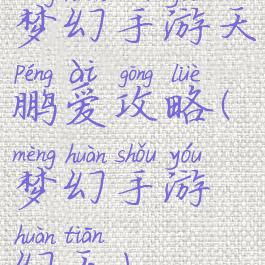 梦幻手游天
Péng ài gōng lüè
鹏爱攻略(
mèng huàn shǒu yóu
梦幻手游
huàn tiān
幻天)